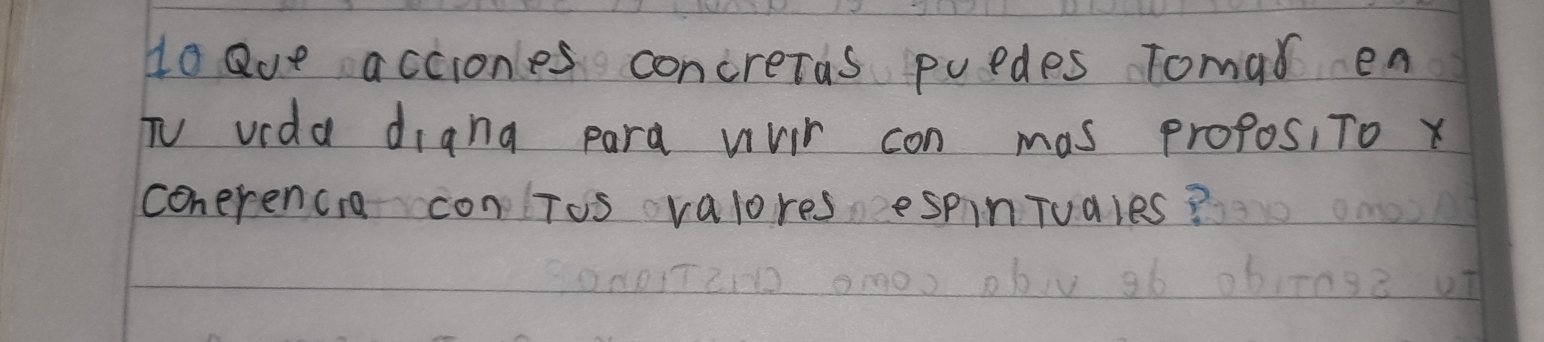 10 Que acciones concretas puedes Tomar en
TU vida diaria para vivir con mas proposiTo y
coherencia con Tus valores espirituales?